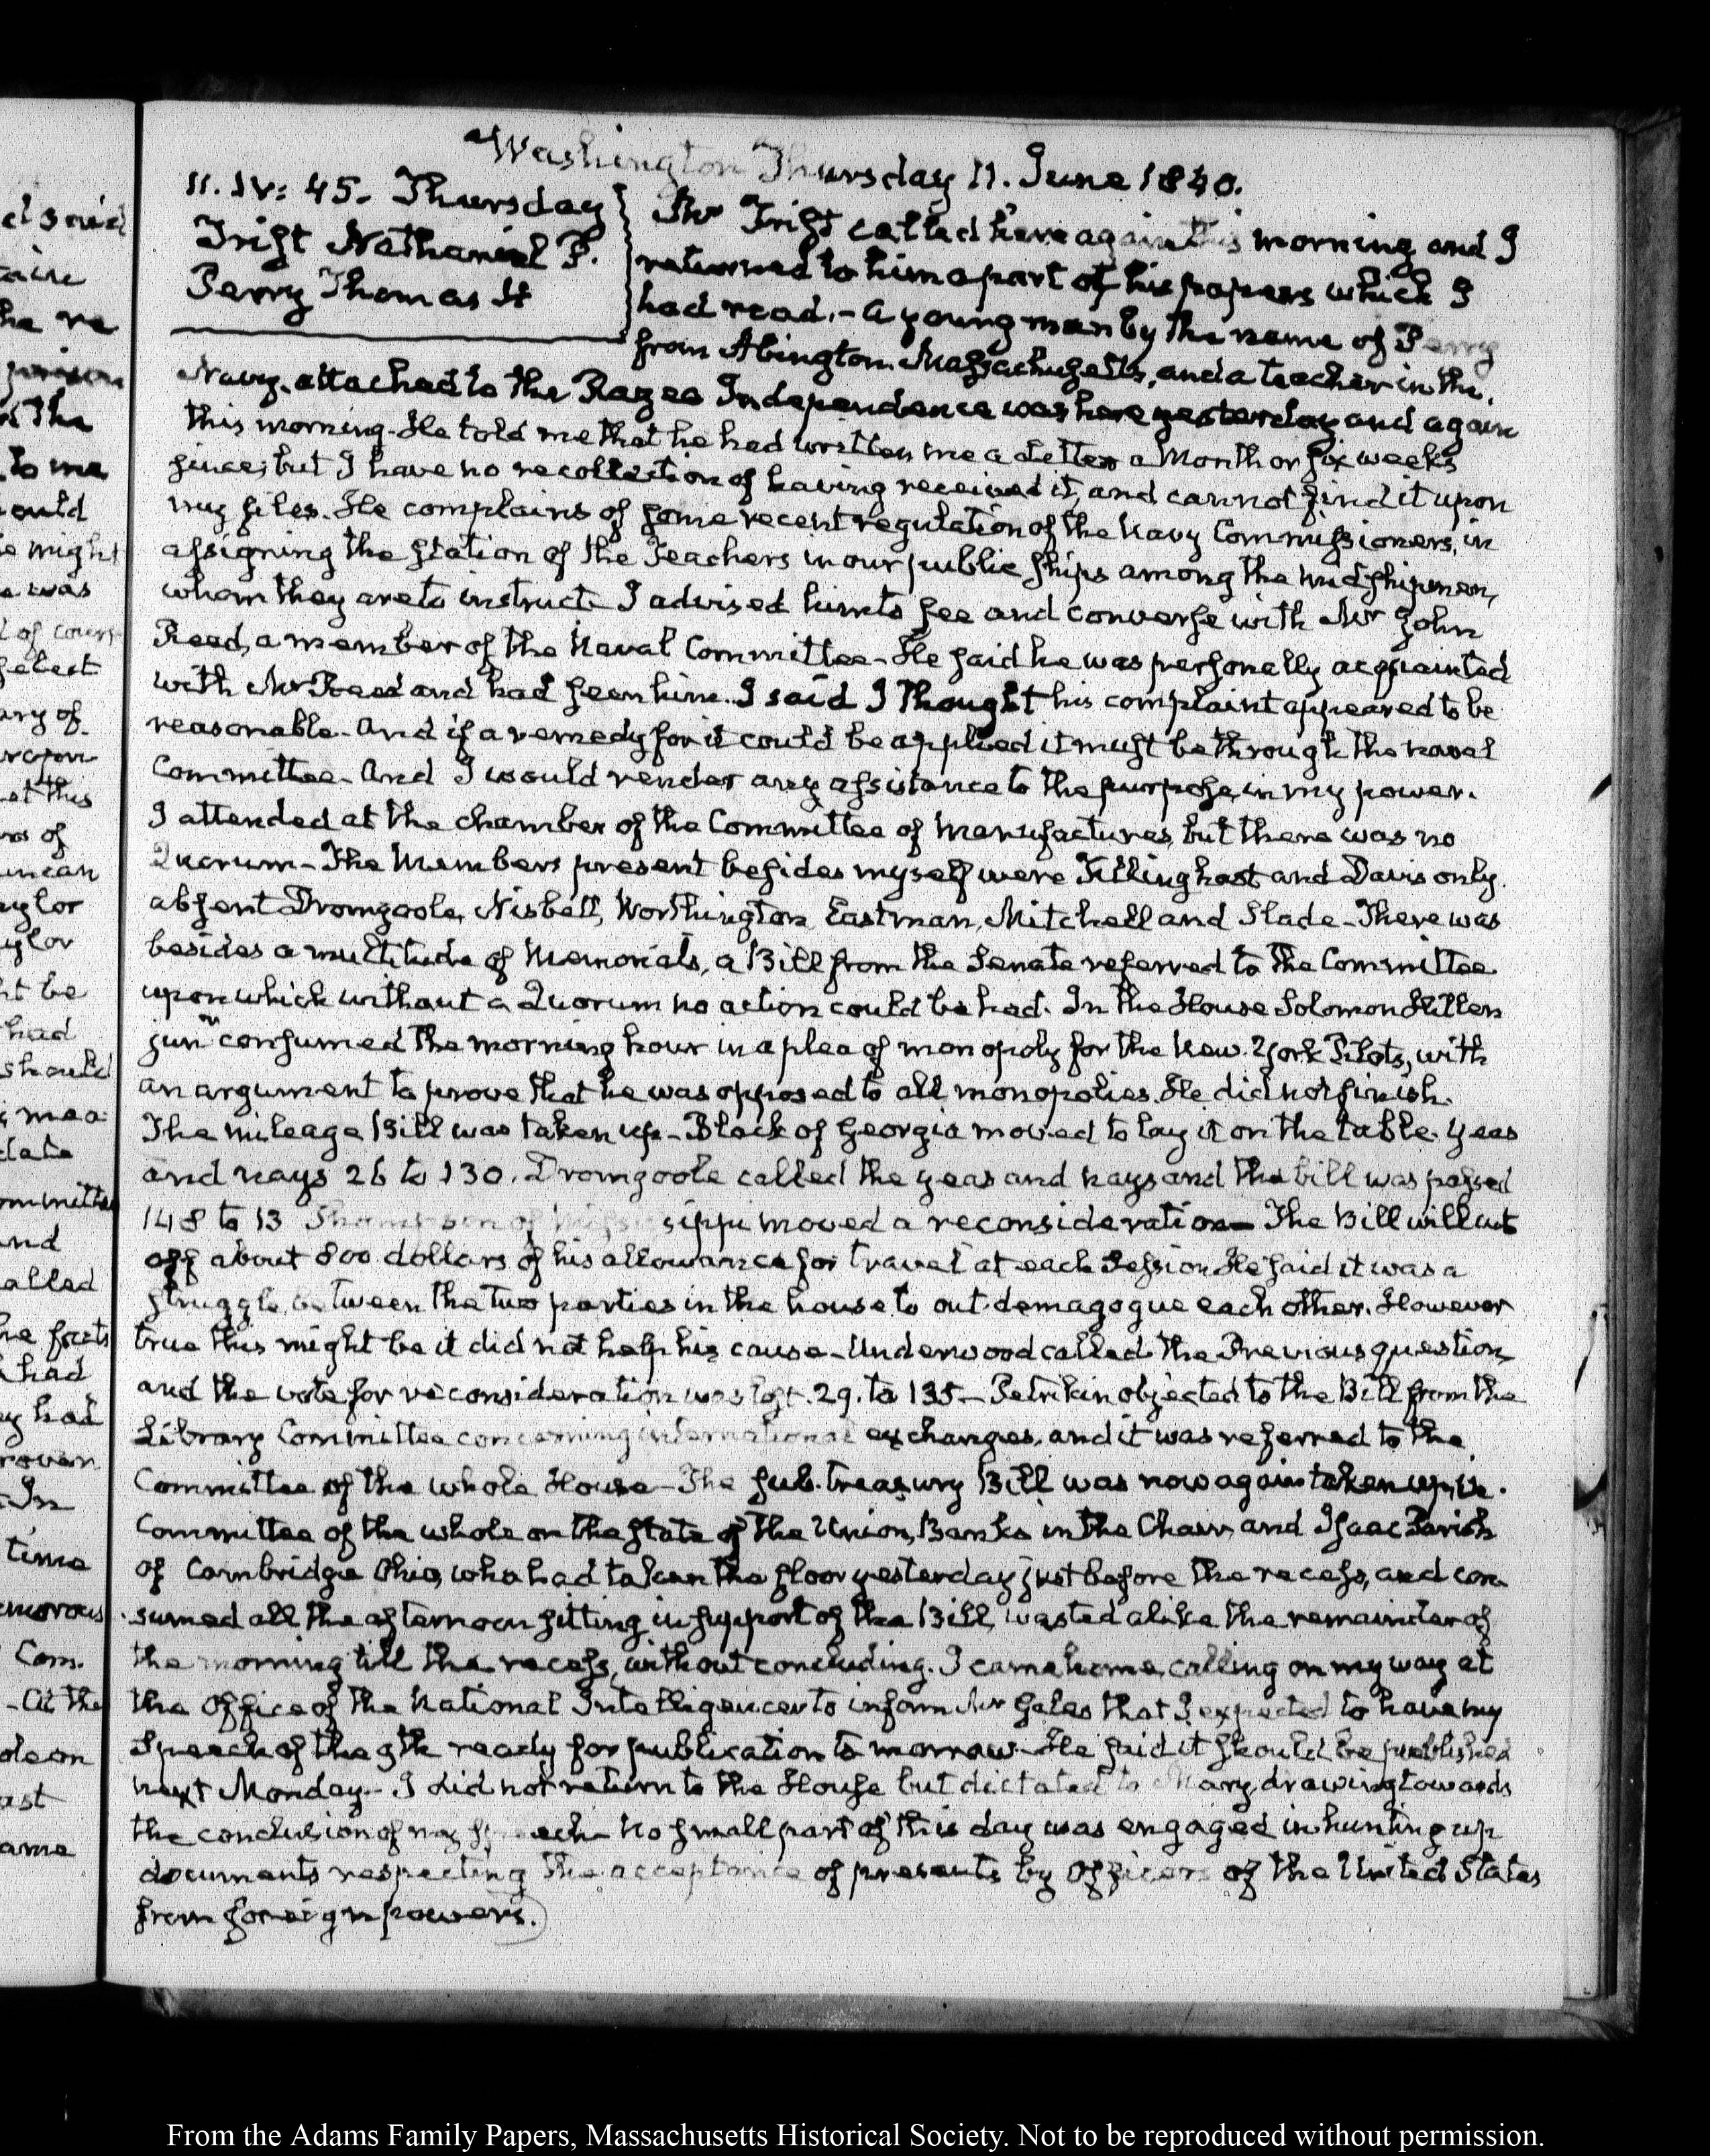 Washington Thursday 11. June 1840.
11. IV: 45. Thursday
Trist Nathaniel P.
Perry Thomas
Mr Trist called here again this morning and I
returned to him a part of his papers which I
had read.- a young man by the name of Perry
from Abington Massachusetts, and a teacher in the
Navy, attached to the Razee Independence was here yesterday and again
this morning- He told me that he had written me a Letter a Month or six weeks
since; but I have no recollection of having received it, and cannot find it upon
my files. He complains of some recent regulation of the Navy Commissioners, in
assigning the station of the Teachers in our public ships among the midshipmen,
whom they are to instruct- I advised him to see and converse with Mr John
Reed, a member of the Naval Committee- He said he was personally acquainted
with Mr Reed and had seen him. I said I thought his complaint appeared to be
reasonable- and if a remedy for it could be applied it must be through the naval
Committee- And I would render any assistance to the purpose in my power.
I attended at the chamber of the Committee of Manufactures, but there was no
Quorum- The Members present besides myself were Tillinghast and Davis only.
absent Dromgoole, Nisbett, Worthington, Eastman, Mitchell and Slade- There was
besides a multitude of Memorials, a Bill from the Senate referred to the Committee
upon which without a Quorum no action could be had. In the House Solomon Hillen
junr consumed the morning hour in a plea of monopoly for the New-York Pilots, with
an argument to prove that he was opposed to all monopolies. He did not finish.
The mileage Bill was taken up- Black of Georgia moved to lay it on the table. Yeas
and nays 26 to 130. Dromgoole called the yeas and nays and the bill was passed
148 to 13 Thompson of Mississippi moved a reconsideration- The Bill will cut
off about 800 dollars of his allowance for travel at each Session He said it was a
struggle between the two parties in the house to out-demagogue each other. However
true this might be it did not help his cause- Underwood called the Previous question,
and the vote for reconsideration was lost. 29. to 135- Petrikin objected to the Bill from the
Library Committee concerning international exchanges, and it was referred to the
Committee of the whole House- The sub-treasury Bill was now again taken up, in
Committee of the whole on the state of the Union, Banks in the Chair, and Isaac Parish
of Cambridge Ohio, who had taken the floor yesterday just before the recess, and con
sumed all the afternoon sitting in support of the Bill, wasted alike the remainder of
the morning till the recess, without concluding. I came home, calling on my way at
the Office of the National Intelligencer to inform Mr Gales that I expected to have my
Speech of the 9th ready for publication to morrow- He said it should be published
next Monday- I did not return to the House but dictated to Mary, drawing towards
the conclusion of my speech- No small part of this day was engaged in hunting up
documents respecting the acceptance of presents by Officers of the United States
from foreign powers.
From the Adams Family Papers, Massachusetts Historical Society. Not to be reproduced without permission.